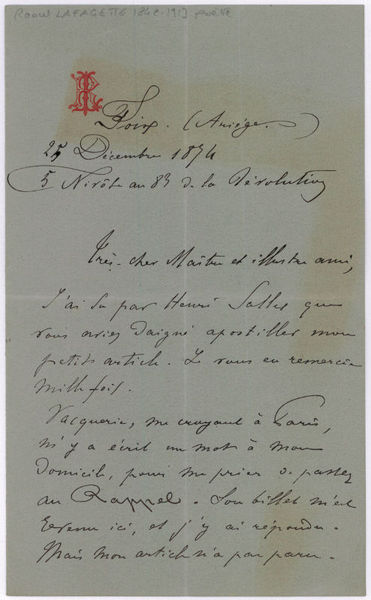 Raoul LAFAGETTE 1842-1913 poète
RL
Foix. (Ariège.)
25 Décembre 1874
5 Nivôse an 83 de la Révolution
Très-cher Maître et illustre ami,
J'ai su par Henri Salles que
vous aviez daigné apostiller mon
petit article. Je vous en remercie
mille fois.
Vacquerie, me croyant à Paris,
m'y a écrit un mot à mon
domicile, pour me prier de passer
au Rappel. Son billet m'est
revenu ici, et j'y ai répondu.
Mais mon article n'a pas paru.